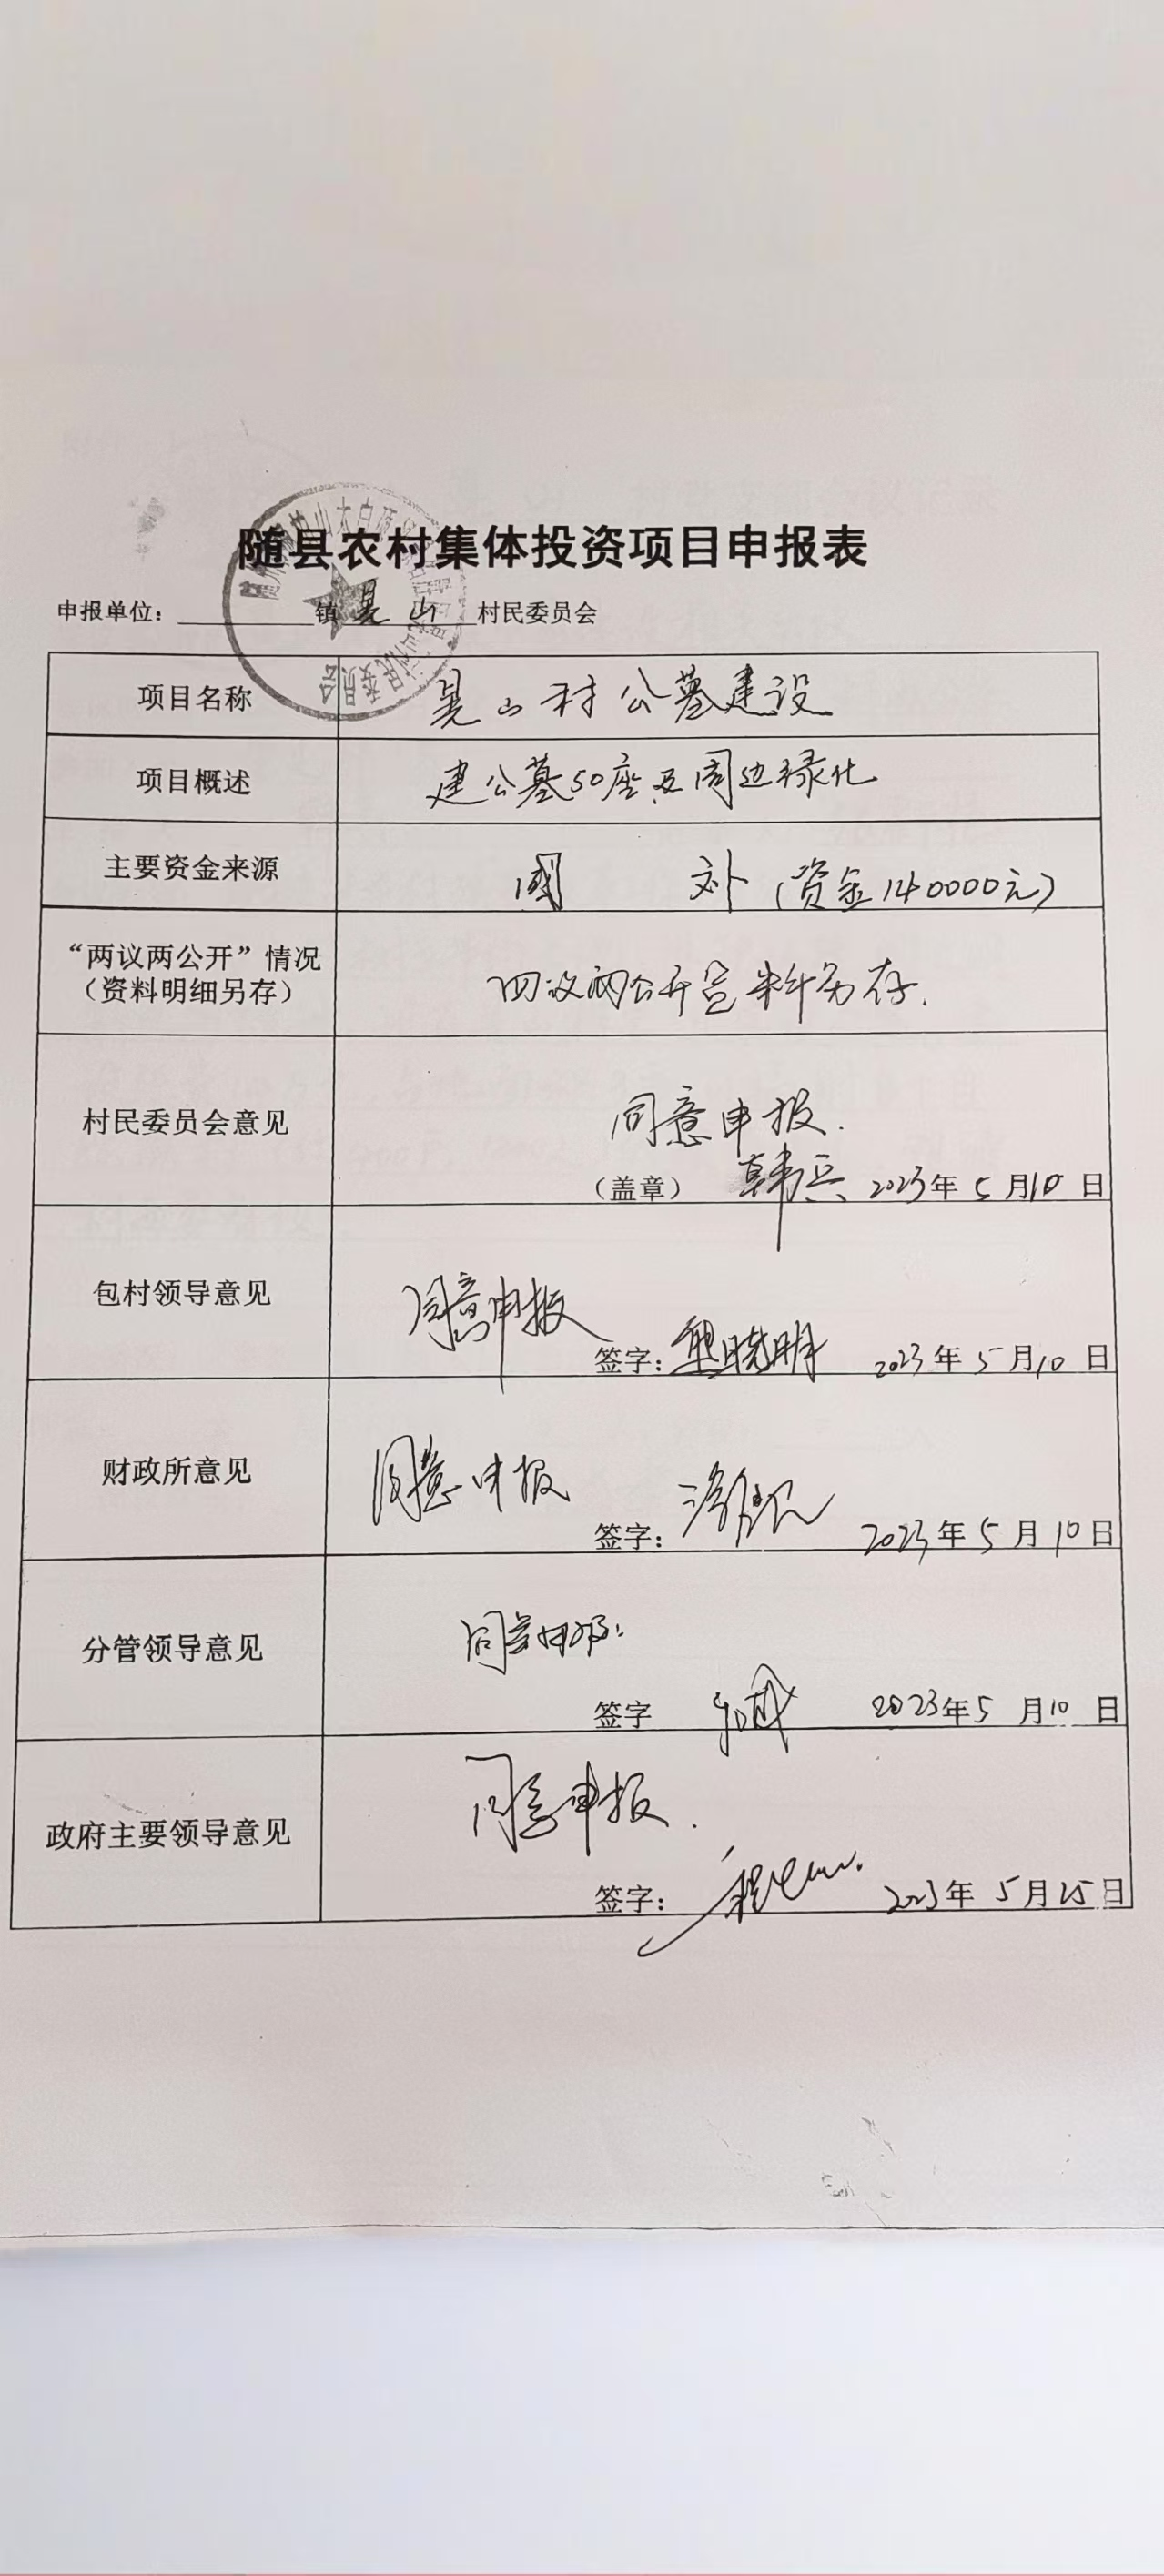 随县农村集体投资项目申报表
申报单位：镇 山 村民委员会
项目名称 山村公墓建设
项目概述 建公墓50座及周边绿化
主要资金来源 （资金140000元）
“两议两公开”情况
（资料明细另存） 四议两公开资料另存.
村民委员会意见 同意申报.
（盖章） 韩兵 2023年5月10日
包村领导意见 同意申报
签字：熊晓明 2023年5月10日
财政所意见 同意申报
签字： 2023年5月10日
分管领导意见 同意申报.
签字 2023年5月10日
政府主要领导意见 同意申报.
签字： 2023年5月25日